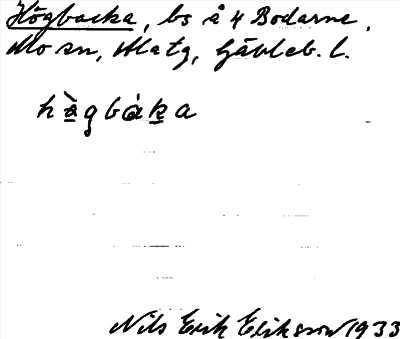 Högbacka, bs å 4 Bodarne,
Mo sn, Matg, Gävleb. l.
hàgbàka
Nils Erik Eriksson 1933